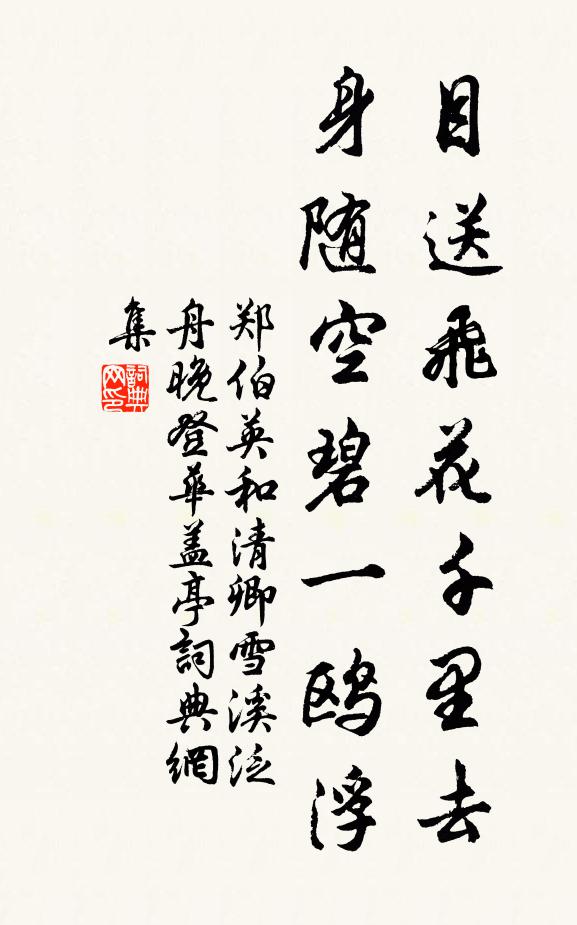 目送飛花千里去
身随空碧一鸥浮
郑伯英和清卿雪溪泛
舟晚登華盖亭詞典網
集
詞典
网印